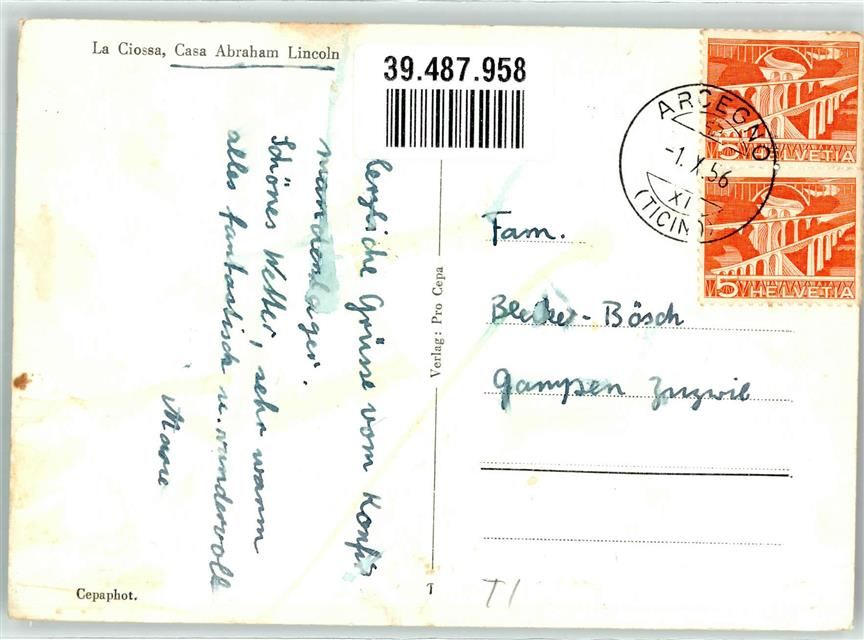 La Ciossa, Casa Abraham Lincoln
39.487.958
ARCEGNO
-1.X.56
XI
(TICINO)
5 HELVETIA
5 HELVETIA
herzliche Grüsse vom Konfir
mandenlager.
Schönes Wetter, sehr warm
alles fantastisch u. wundervoll
Verlag: Pro Cepa
Fam.
Bösch
Gampen Zuzwil
Cepaphot.
T
TI